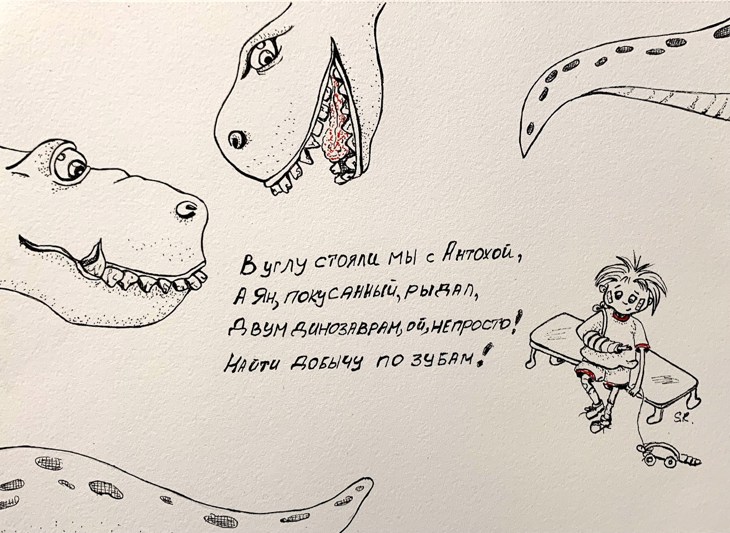 В углу стояли мы с Антохой,
А Ян, покусанный, рыдал,
Двум динозаврам, ой, непросто!
Найти добычу по зубам!
S.R.